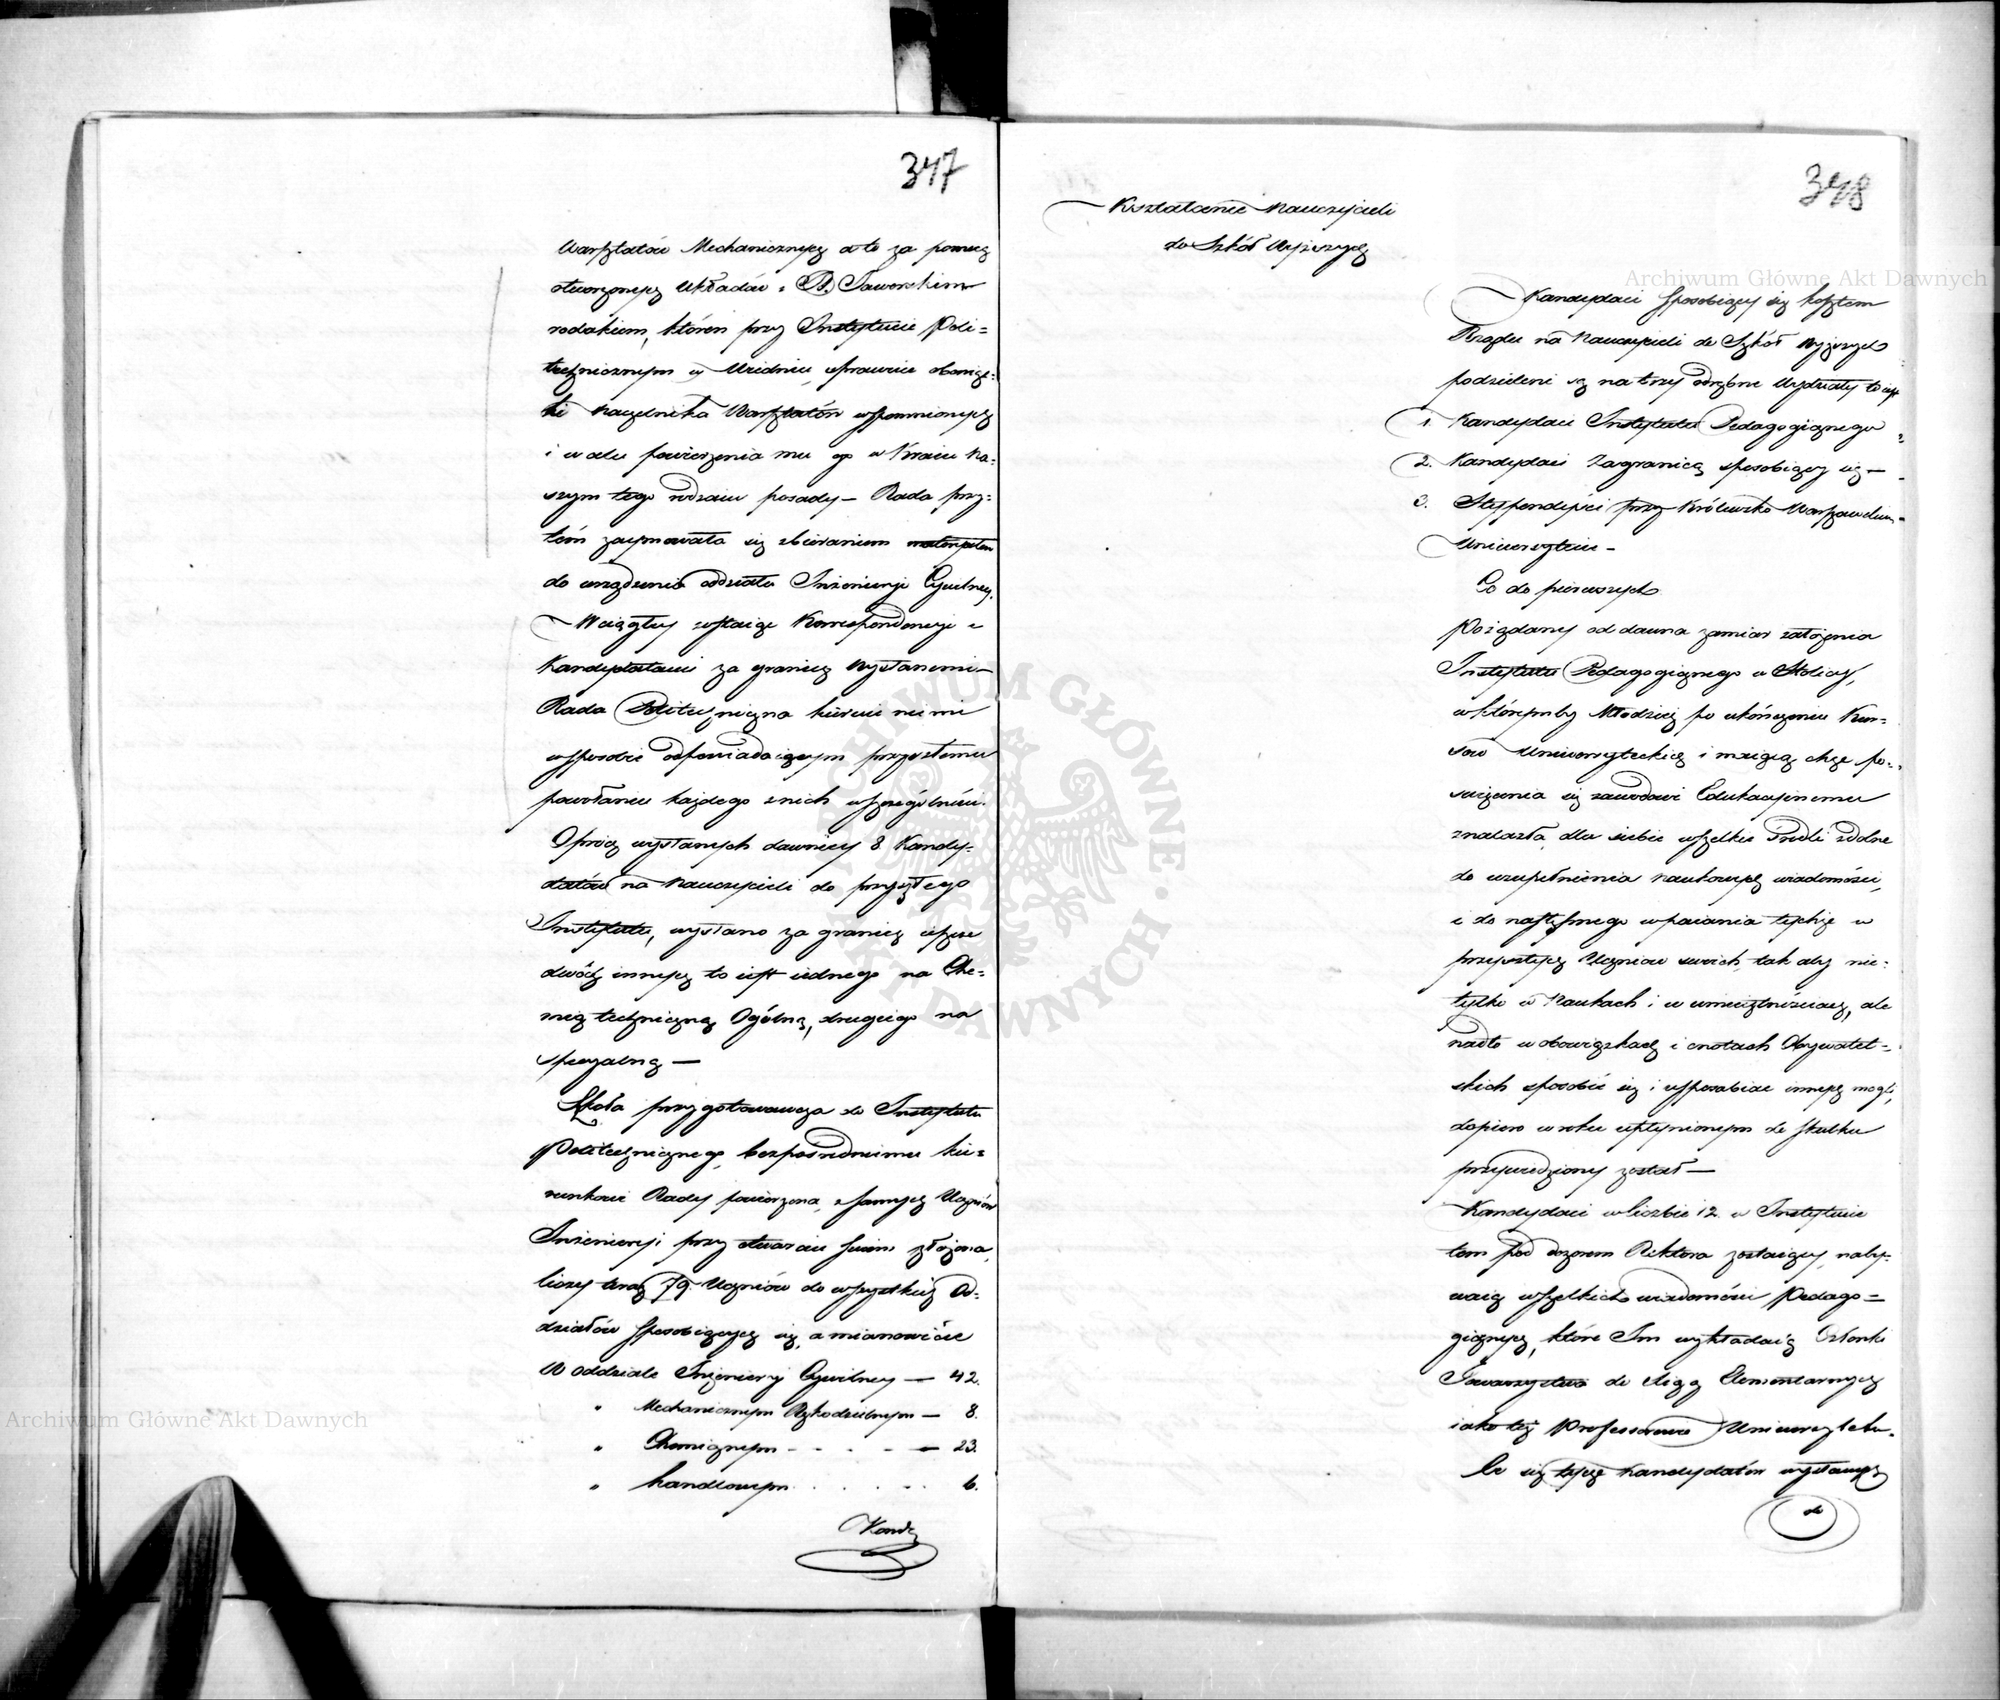 347
Warsztatów Mechanicznych a to za pomocą
otworzonych Układów z P. Jaworskim
rodakiem, którem przy Instytucie Poli=
technicznym w Wiedniu, sprawuie obowiąz=
ki Naczelnika Warsztatów wspomnionych
i w celu powierzenia mu go w Kraiu na=
szym tego rodzaiu posady — Rada przy=
tém zaymowała się zbieraniem
do urządzenia oddziału Inżenieryi Cywilney.
W ciągłey zostaiąc Korrespondencyi z
Kandydatami za granicę wysłanemi —
Rada Politechniczna kieruie nimi
w sposobie odpowiadaiącym przyszłemu
powołaniu każdego z nich w szczególności.
Oprócz wysłanych dawniey 8 Kandy=
datów na Nauczycieli do przyszłego
Instytutu, wysłano za granicę ieszcze
dwóch innych to iest iednego na Che=
mią techniczną Ogólną, drugiego na
specyalną —
Szkoła przygotowawcza do Instytutu
Politechnicznego, bezpośredniemu kie=
runkowi Rady powierzona, z samych Uczniów
Inżenieryi przy otwarciu swoim złożona,
liczy teraz 79. Uczniów do wszystkich Od=
działów sposobiących się, a mianowicie
W oddziale Inżenieryi Cywilney — 42.
" Mechanicznym Rękodzielnym — 8.
" Chemicznym - - - - — 23.
" handlowym . . . . . . 6.
Kandy
348
Kształcenie Nauczycieli
do Szkół Wyższych
Kandydaci sposobiący się kosztem
Rządu na Nauczycieli do Szkół wyższych
podzieleni są na trzy odrębne Wydziały to iest
1. Kandydaci Instytutu Pedagogicznego
2. Kandydaci Zagranicą sposobiący się —
3. Stypendyści przy Królewsko Warszawskim=
Uniwersytecie —
Co do pierwszych
Pożądany od dawna zamiar założenia
Instytutu Pedagogicznego w Stolicy,
w którymby Młodzież po ukończeniu Kur=
sów Uniwersyteckich i maiąca chęć po=
święcenia się zawodowi Edukacyinemu
znalazła, dla siebie wszelkie środki zdolne
do uzupełnienia naukowych wiadomości,
i do następnego wpaiania tychże w
przyszłych Uczniów swoich, tak aby nie=
tylko w Naukach i w umieiętnościach, ale
nadto w obowiązkach i cnotach Obywatel=
skich sposobić się i usposabiać innych mogli,
dopiero w roku upłynionym do skutku
przywiedziony został —
Kandydaci w liczbie 12. w Instytucie
tem pod dozorem Rektora zostaiący, naby=
waią wszelkich wiadomości Pedago=
gicznych, które Im wykładaią Członki
Towarzystwa do Xiąg Elementarnych
iako też Professorowie Uniwersytetu.
Co się tycze Kandydatów wysłanych
do
Archiwum Główne Akt Dawnych
ARCHIWUM GŁÓWNE AKT DAWNYCH
Archiwum Główne Akt Dawnych